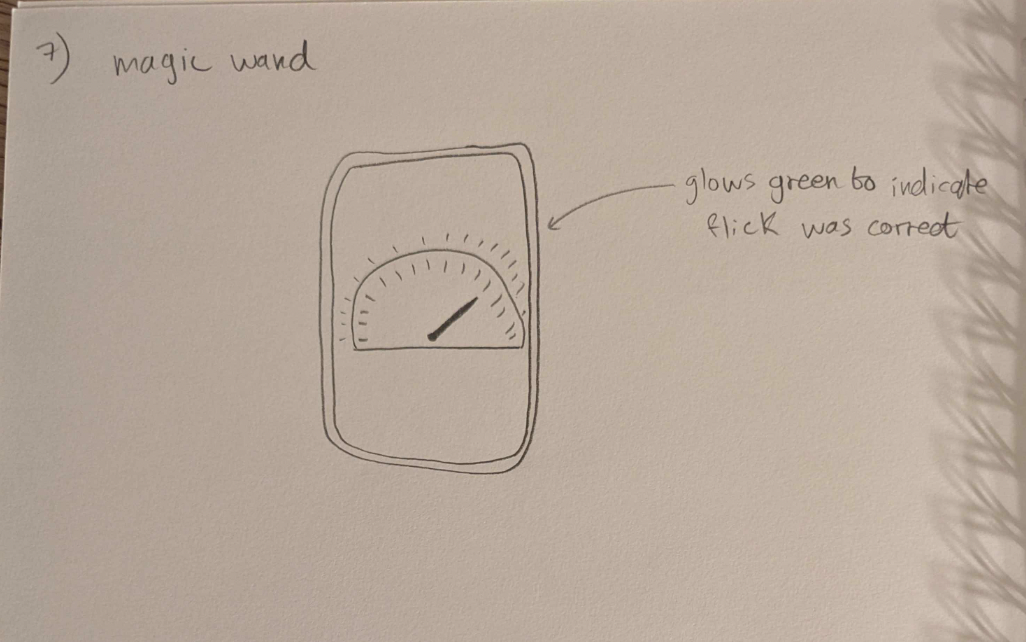 7) magic wand
glows green to indicate
flick was correct